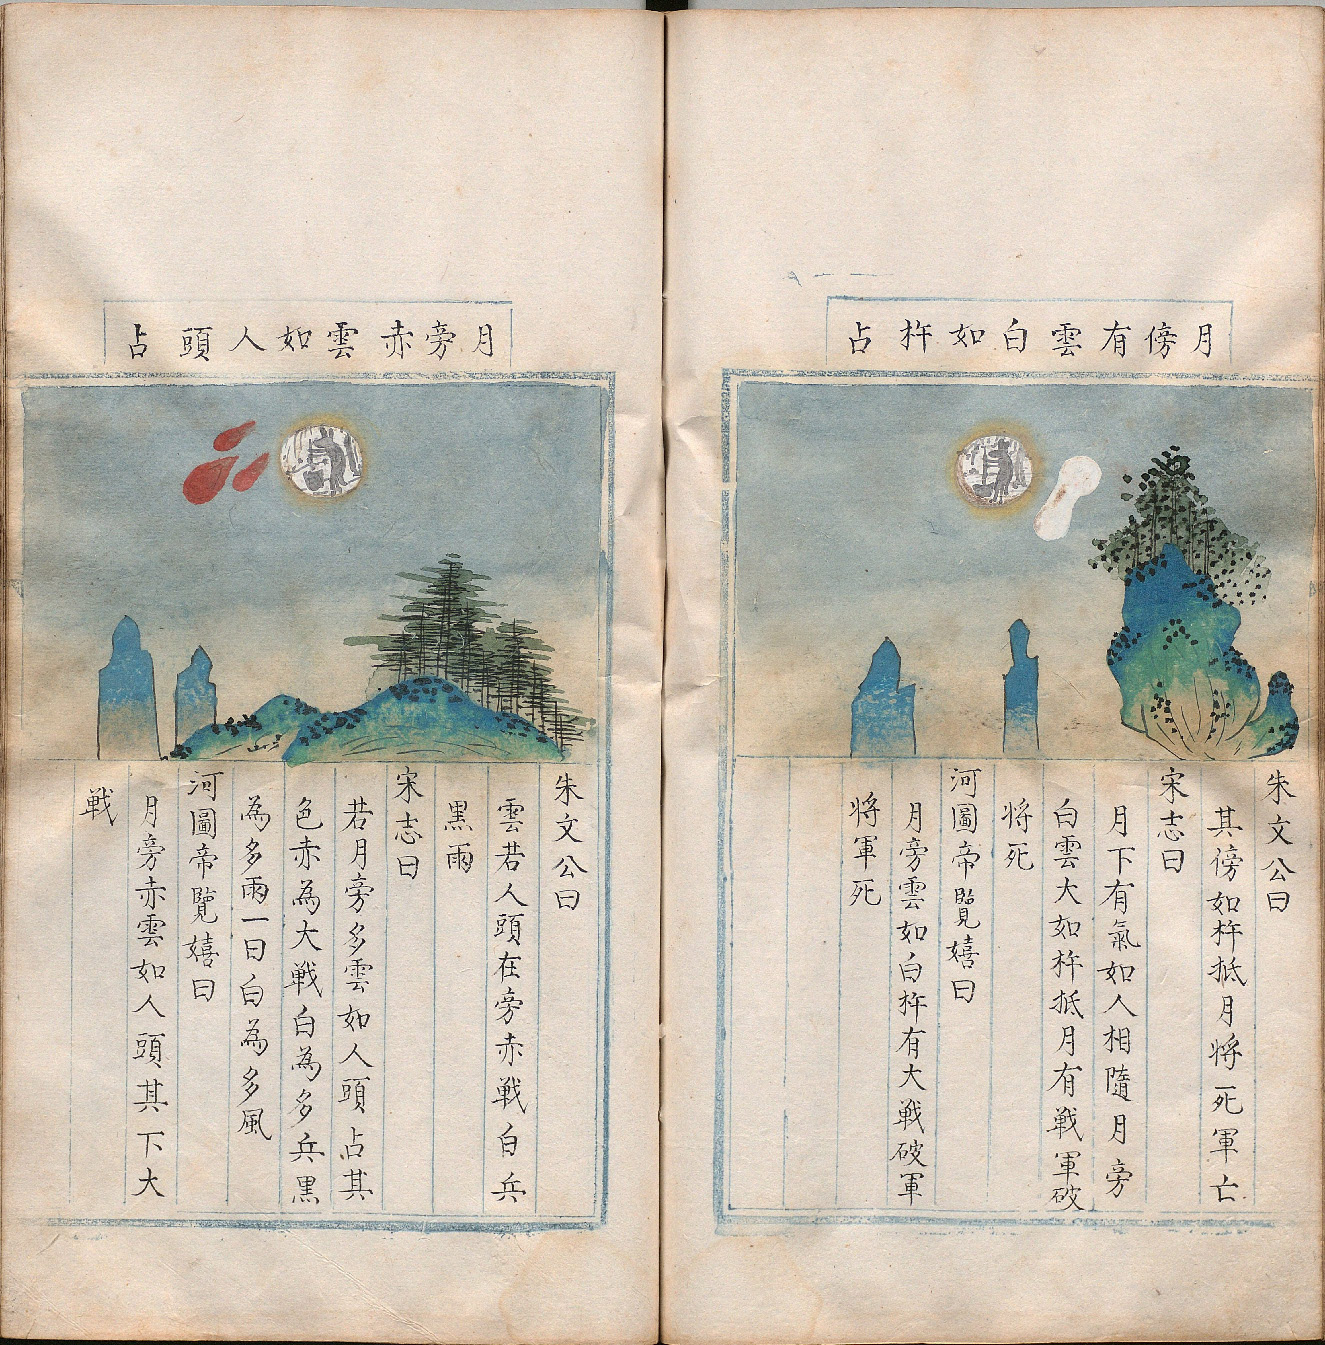 月傍有雲白如杵占
朱文公曰
其傍如杵抵月将死軍亡
宋志曰
月下有氣如人相隨月旁
白雲大如杵抵月有戦軍破
将死
河圖帝覽嬉曰
月旁雲如白杵有大戦破軍
将軍死
月旁赤雲如人頭占
朱文公曰
雲若人頭在旁赤戦白兵
黒雨
宋志曰
若月旁多雲如人頭占其
色赤為大戦白為多兵黒
為多雨一曰白為多風
河圖帝覽嬉曰
月旁赤雲如人頭其下大
戦